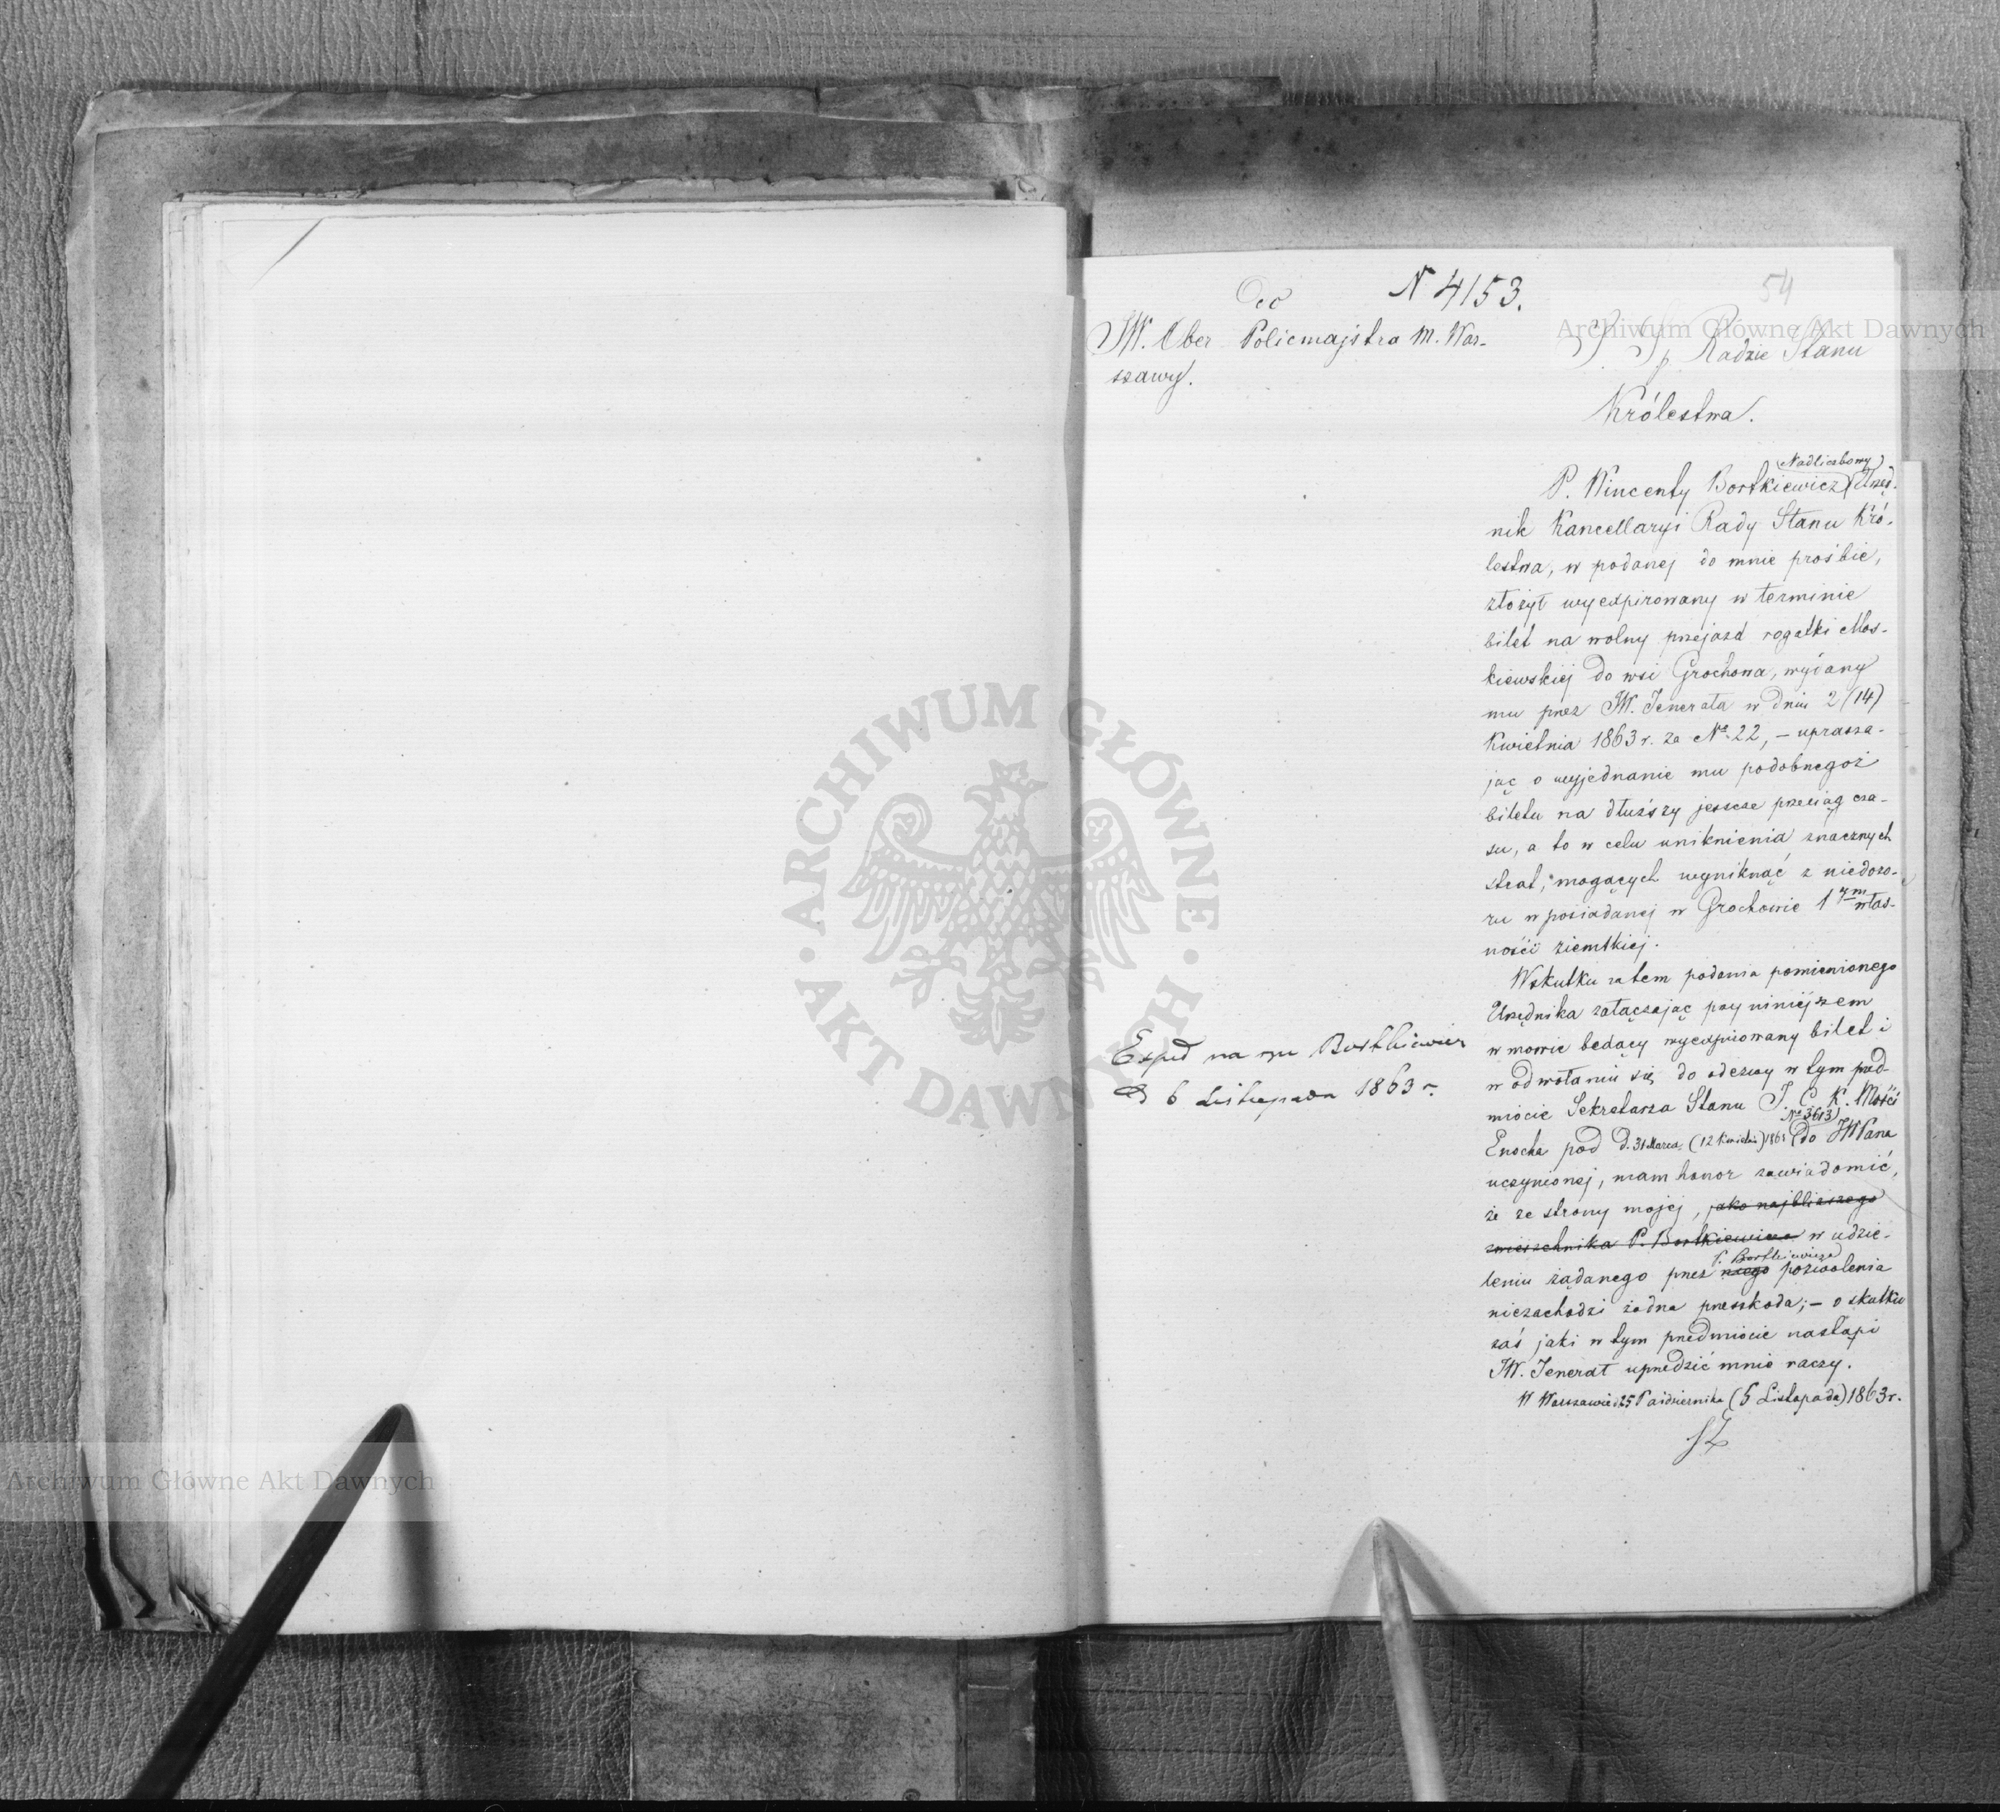 N 4153.
54
Do
JW. Ober Policmajstra M. War-
szawy.
S. S. p. Radzie Stanu
Królestwa.
Nadliczbowy
P. Wincenty Bortkiewicz Urzęd-
nik Kancellaryi Rady Stanu Kró-
lestwa, w podanej do mnie prośbie,
złożył wyexpirowany w terminie
bilet na wolny przejazd rogatki Mos-
kiewskiej do wsi Grochowa, wydany
mu przez JW. Jenerała w dniu 2 (14)
Kwietnia 1863 r. za No. 22, – uprasza-
jąc o wyjednanie mu podobnegoż
biletu na dłuższy jeszcze przeciąg cza-
su, a to w celu uniknienia znacznych
strat, mogących wyniknąć z niedozo-
ru w posiadanej w Grochowie 1 ym włas-
ności ziemskiej.
Wskutku zatem podania pomienionego
Urzędnika załączając przy niniejszem
w mowie będący wyexpirowany bilet i
w odwołaniu się do odezwy w tym przed-
miocie Sekretarza Stanu J. C. K. Mości
No 3613
Enocha pod d. 31 Marca (12 Kwietnia) 1863 do JWPana
uczynionej, mam honor zawiadomić,
że ze strony mojej, jako najbliższego
zwierzchnika P. Bortkiewicza w udzie-
P. Bortkiewicza
leniu żądanego przez niego pozwolenia
niezachodzi żadna przeszkoda; – o skutku
zaś jaki w tym przedmiocie nastąpi
JW. Jenerał uprzedzić mnie raczy.
W Warszawie d 25 Października (6 Listopada) 1863 r.
Exped na ręce Bortkiewicza
d 6 Listopada 1863 r.
Archiwum Główne Akt Dawnych
ARCHIWUM GŁÓWNE · AKT DAWNYCH ·
Archiwum Główne Akt Dawnych